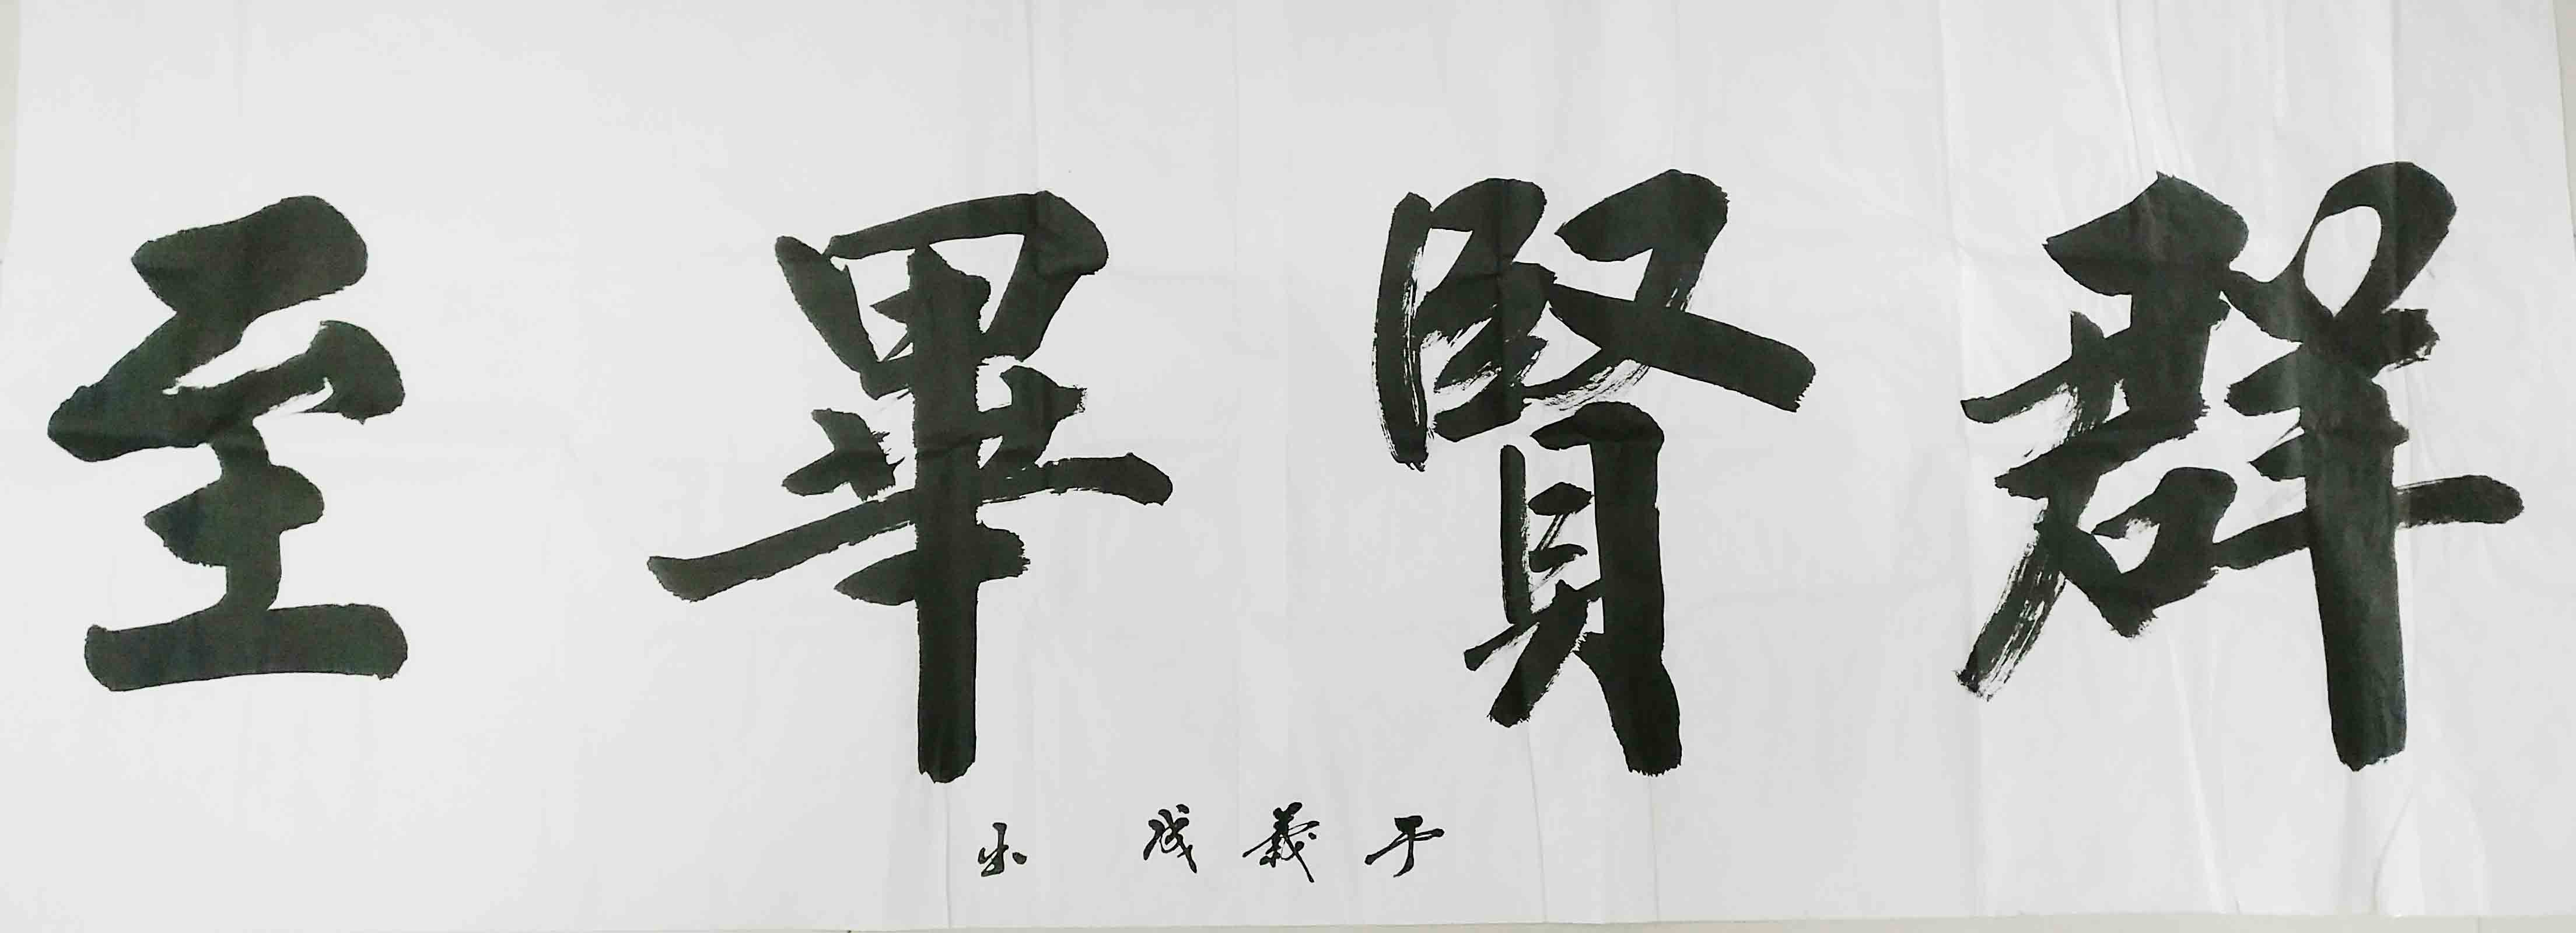 群賢畢至
于義成书